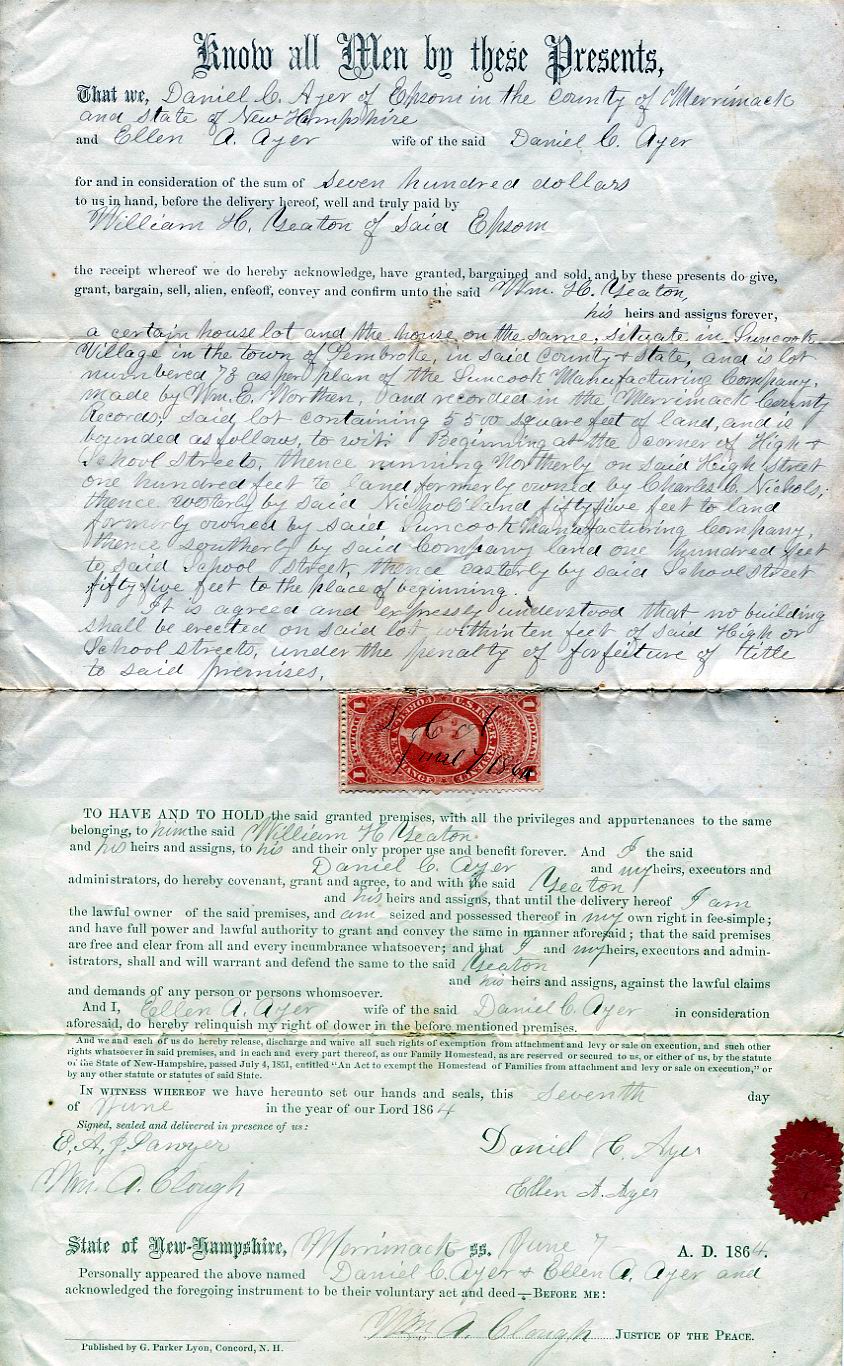 Know all Men by these Presents,
That we, Daniel C. Ayer of Epsom in the county of Merrimack
and state of New Hampshire
and Ellen A. Ayer wife of the said Daniel C. Ayer
for and in consideration of the sum of seven hundred dollars
to us in hand, before the delivery hereof, well and truly paid by
William H. Yeaton of said Epsom
the receipt whereof we do hereby acknowledge, have granted, bargained and sold, and by these presents do give,
grant, bargain, sell, alien, enfeoff, convey and confirm unto the said Wm. H. Yeaton,
his heirs and assigns forever,
a certain house lot and the house on the same, situate in Suncook
Village in the town of Pembroke, in said County & State, and is lot
numbered 78 as per plan of the Suncook Manufacturing Company,
made by Wm. E. and recorded in the Merrimack County
Records; said lot containing 5500 square feet of land, and is
bounded as follows, to wit: Beginning at the corner of High &
School streets, thence running Northerly on said High Street
one hundred feet to land formerly owned by Charles C. Nichols;
thence westerly by said Nichol land fifty five feet to land
formerly owned by said Suncook Manufacturing Company,
thence southerly by said Company land one hundred feet
to said School street, thence easterly by said School street
fifty five feet to the place of beginning.
It is agreed and expressly understood that no building
shall be erected on said lot within ten feet of said High or
School streets, under the penalty of forfeiture of title
to said premises,
U.S. INTER. REVENUE
FOREIGN EXCHANGE
1 1
1 1
DOLLAR
D C A
June 7 1864
TO HAVE AND TO HOLD the said granted premises, with all the privileges and appurtenances to the same
belonging, to him the said William H Yeaton
and his heirs and assigns, to his and their only proper use and benefit forever. And I the said
Daniel C. Ayer and my heirs, executors and
administrators, do hereby covenant, grant and agree, to and with the said Yeaton
and his heirs and assigns, that until the delivery hereof I am
the lawful owner of the said premises, and am seized and possessed thereof in my own right in fee-simple;
and have full power and lawful authority to grant and convey the same in manner aforesaid; that the said premises
are free and clear from all and every incumbrance whatsoever; and that I and my heirs, executors and admin-
istrators, shall and will warrant and defend the same to the said Yeaton
and his heirs and assigns, against the lawful claims
and demands of any person or persons whomsoever.
And I, Ellen A. Ayer wife of the said Daniel C. Ayer in consideration
aforesaid, do hereby relinquish my right of dower in the before mentioned premises.
And we and each of us do hereby release, discharge and waive all such rights of exemption from attachment and levy or sale on execution, and such other
rights whatsoever in said premises, and in each and every part thereof, as our Family Homestead, as are reserved or secured to us, or either of us, by the statute
of the State of New-Hampshire, passed July 4, 1851, entitled "An Act to exempt the Homestead of Families from attachment and levy or sale on execution," or
by any other statute or statutes of said State.
IN WITNESS WHEREOF we have hereunto set our hands and seals, this seventh day
of June in the year of our Lord 1864
Signed, sealed and delivered in presence of us:
E. A. J. Sawyer Daniel C. Ayer
Wm. A. Clough Ellen A. Ayer
State of New-Hampshire, Merrimack ss. June 7 A. D. 1864.
Personally appeared the above named Daniel C. Ayer & Ellen A. Ayer and
acknowledged the foregoing instrument to be their voluntary act and deed—BEFORE ME:
Wm. A. Clough JUSTICE OF THE PEACE.
Published by G. Parker Lyon, Concord, N. H.